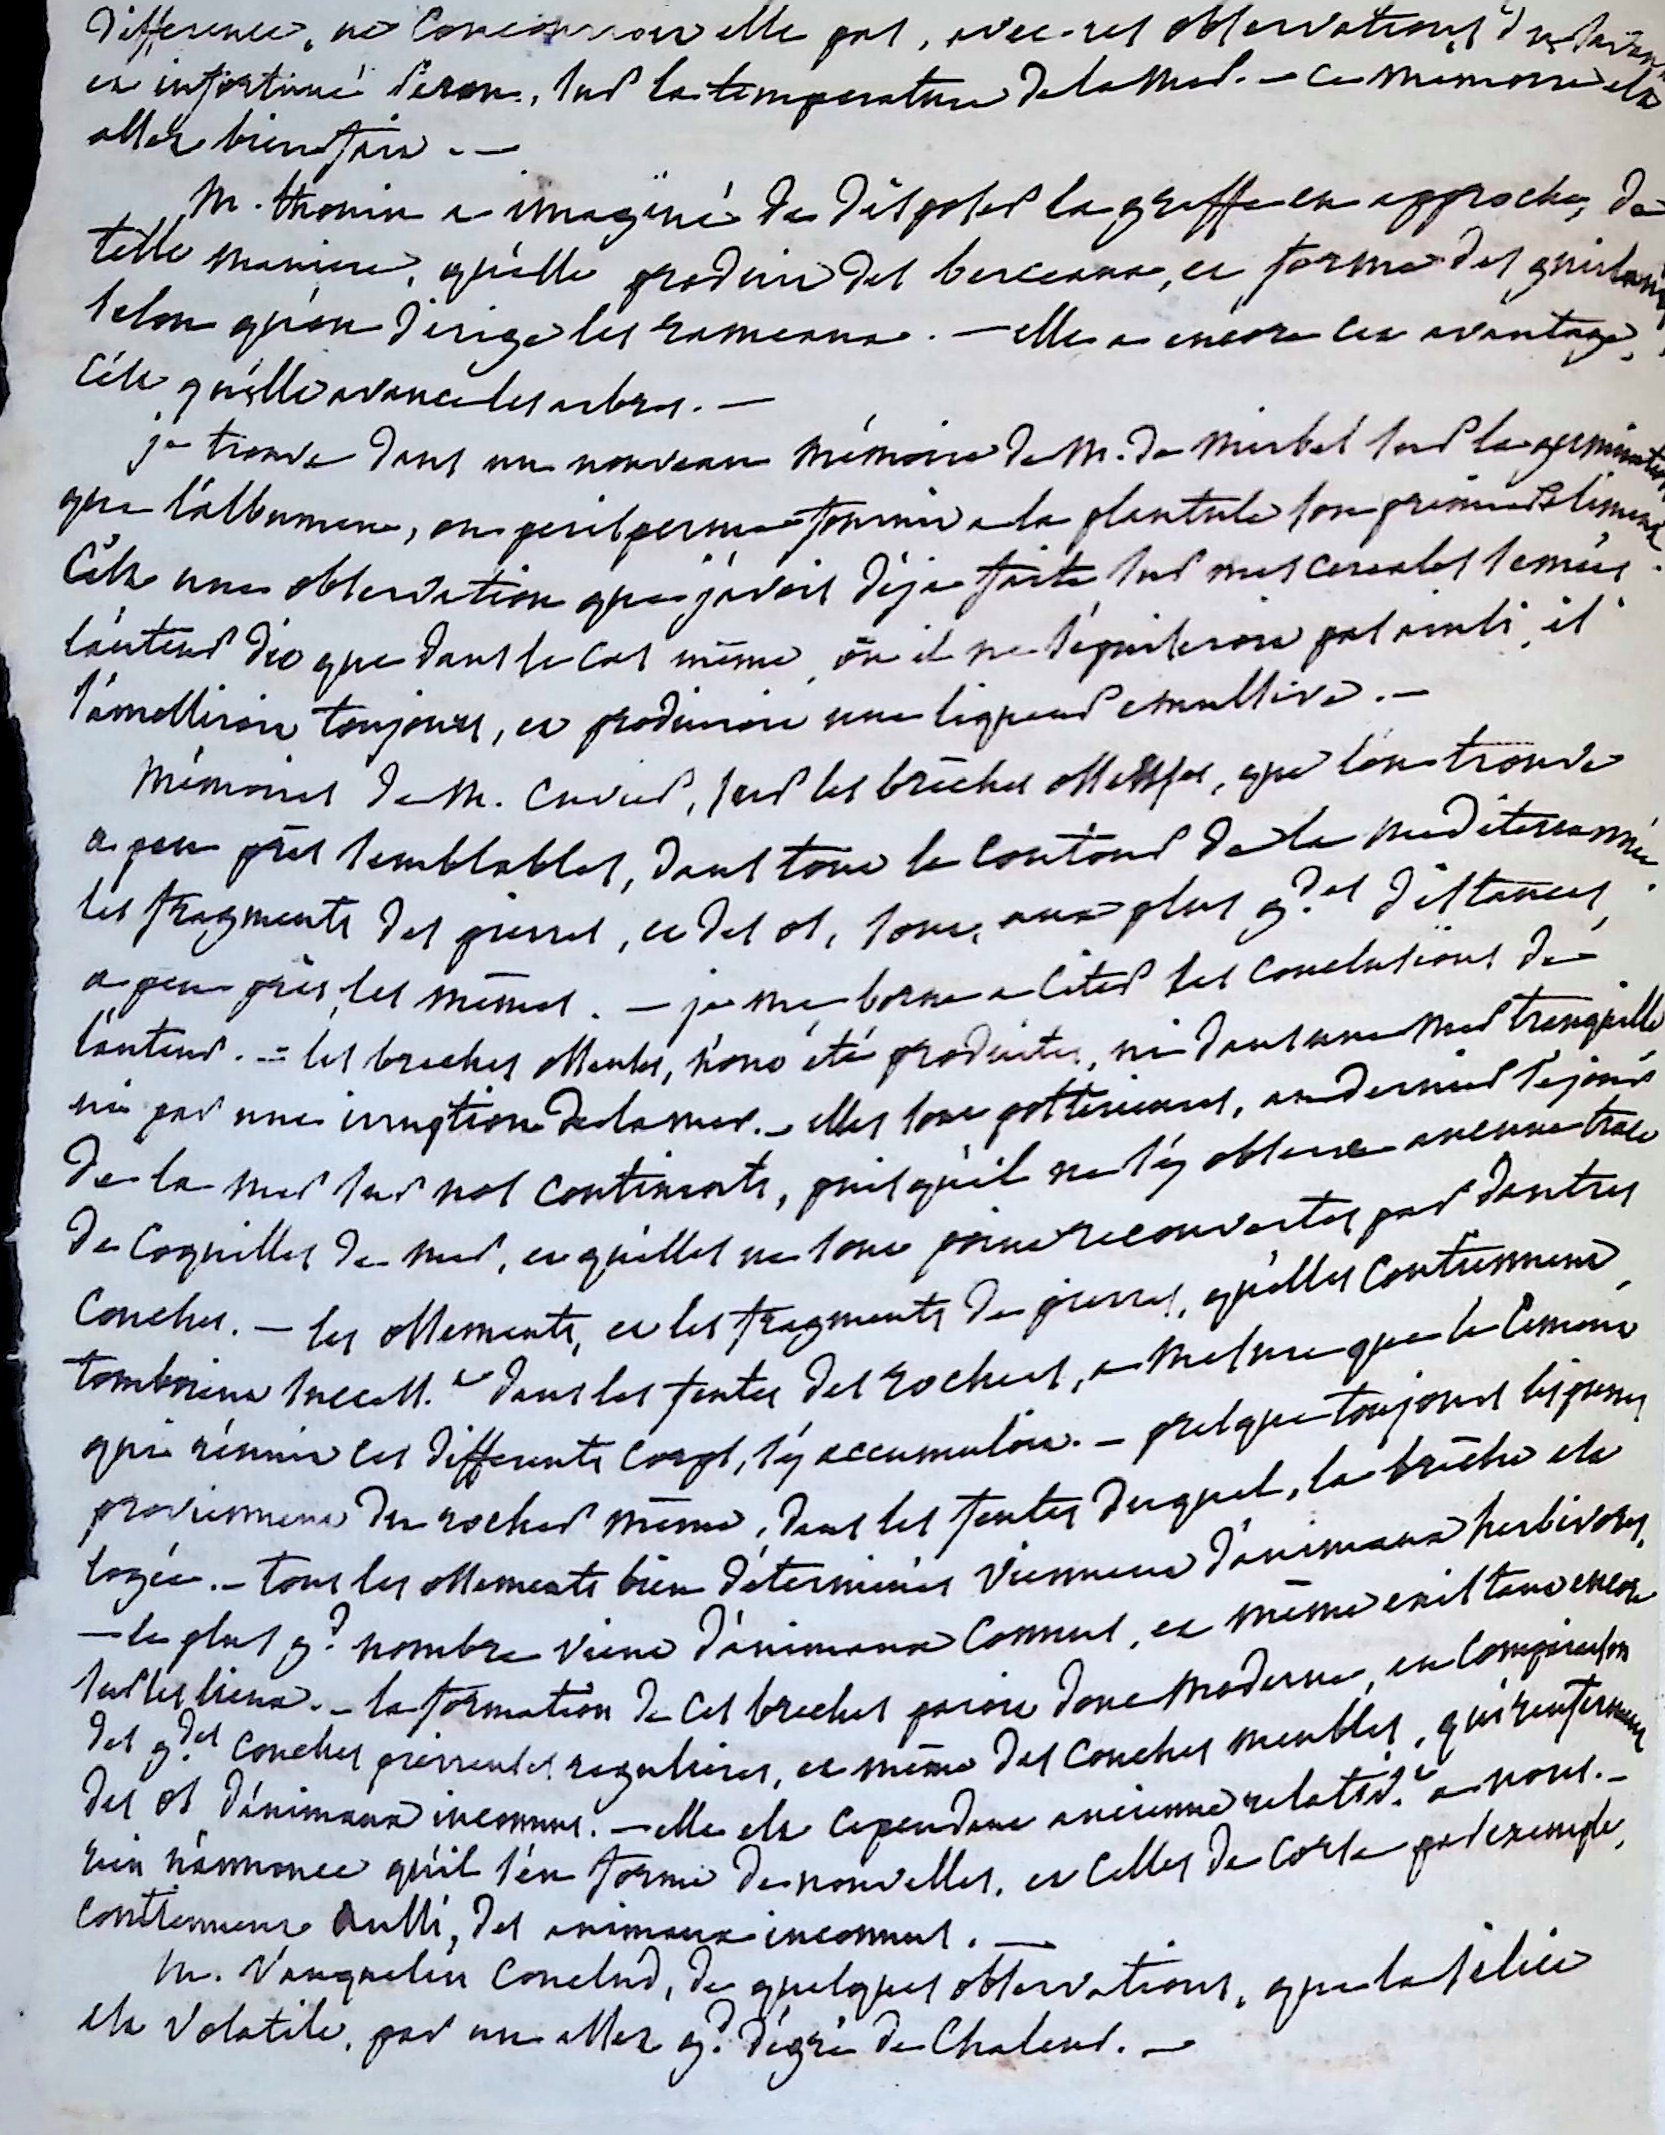 difference, ne concourroit elle pas, avec les observations du savant
et infortuné Peron, sur la temperature de la mer. — Ce memoire est
assez bien fait. —
M. thouin a imaginé de disposer la greffe en approche, de
telle maniere, qu'elle produit des berceaux, et forme des guirlandes
selon qu'on dirige les rameaux. — elle a encore cet avantage,
c'est qu'elle avance les arbres. —
je trouve dans un nouveau mémoire de M. de Mirbel sur la germination
que l'albumen, ou perisperme fournit a la plantule son premier aliment
C'est une observation que j'avois déja faite sur mes cereales semées.
l'auteur dit que dans le cas même, où il ne s'épuiseroit pas ainsi, il
s'amolliroit toujours, et produiroit une liqueur emulsive. —
Mémoires de M. Cuvier, sur les brêches osseuses, que l'on trouve
a peu près semblables, dans tout le contour de la mediterranée.
les fragments des pierres, et des os, sont, aux plus g.des distances,
a peu près, les mêmes. — je me borne a citer les conclusions de
l'auteur. = les breches osseuses, n'ont été produites, ni dans une mer tranquille
ni par une irruption de la mer. — elles sont posterieures, au dernier séjour
de la mer sur nos continents, puisqu'il ne s'y observe aucune trace
de coquilles de mer, et qu'elles ne sont point recouvertes par d'autres
couches. — les ossements, et les fragments de pierres, qu'elles contiennent,
tomboient success.t dans les fentes des rochers, a mesure que le ciment
qui réunit ces differents corps, s'y accumuloit. — presque toujours les pierres
proviennent du rocher même, dans les fentes duquel, la brêche est
logée. — tous les ossements bien déterminés viennent d'animaux herbivores.
— le plus g.d nombre vient d'animaux connus, et même existant encore
sur les lieux. — la formation de ces breches paroit donc moderne, en comparaison
des g.des couches pierreuses regulieres, et même des couches meubles, qui renferment
des os d'animaux inconnus. — elle est cependant ancienne relativ.t a nous. —
rien n'annonce qu'il s'en forme de nouvelles, et celles de Corse par exemple,
contiennent aussi, des animaux inconnus. —
M. Vauquelin conclud, de quelques observations, que la silice
est volatile, par un assez g.d dégré de chaleur. —